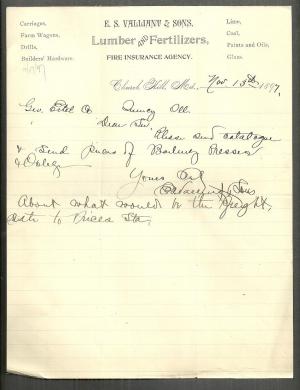 Carriages,
Farm Wagons,
Drills,
Builders' Hardware.
E. S. VALLIANT & SONS,
Lumber AND Fertilizers,
FIRE INSURANCE AGENCY.
Lime,
Coal,
Paints and Oils,
Glass.
Church Hill, Md., Nov. 15th 1897,
Geo. Ertel Co. Quincy Ill.
Dear Sir,
Please send catalogue
& send prices of Bailing Presses
& Oblige
Yours &c
E.S. Valliant & Sons
About what would be the freight,
rate to Prices Sta,